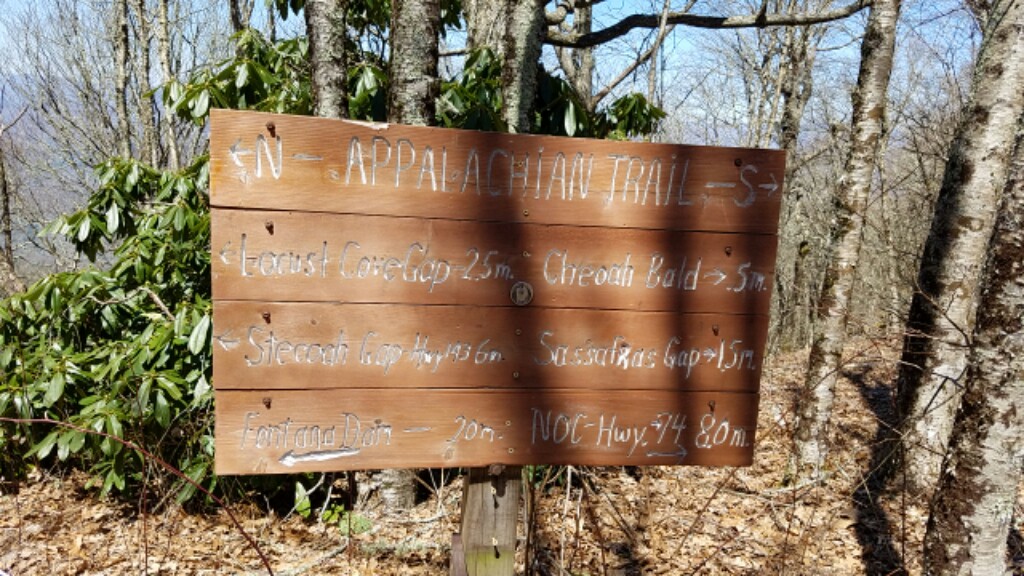 ←N – APPALACHIAN TRAIL – S→
← Locust Cove Gap – 2.5m. Cheoah Bald → .5m.
← Stecoah Gap – Hwy 143 6m. Sassafras Gap → 1.5m.
Fontana Dam — 20m. NOC – Hwy. 74 8.0m.
← →